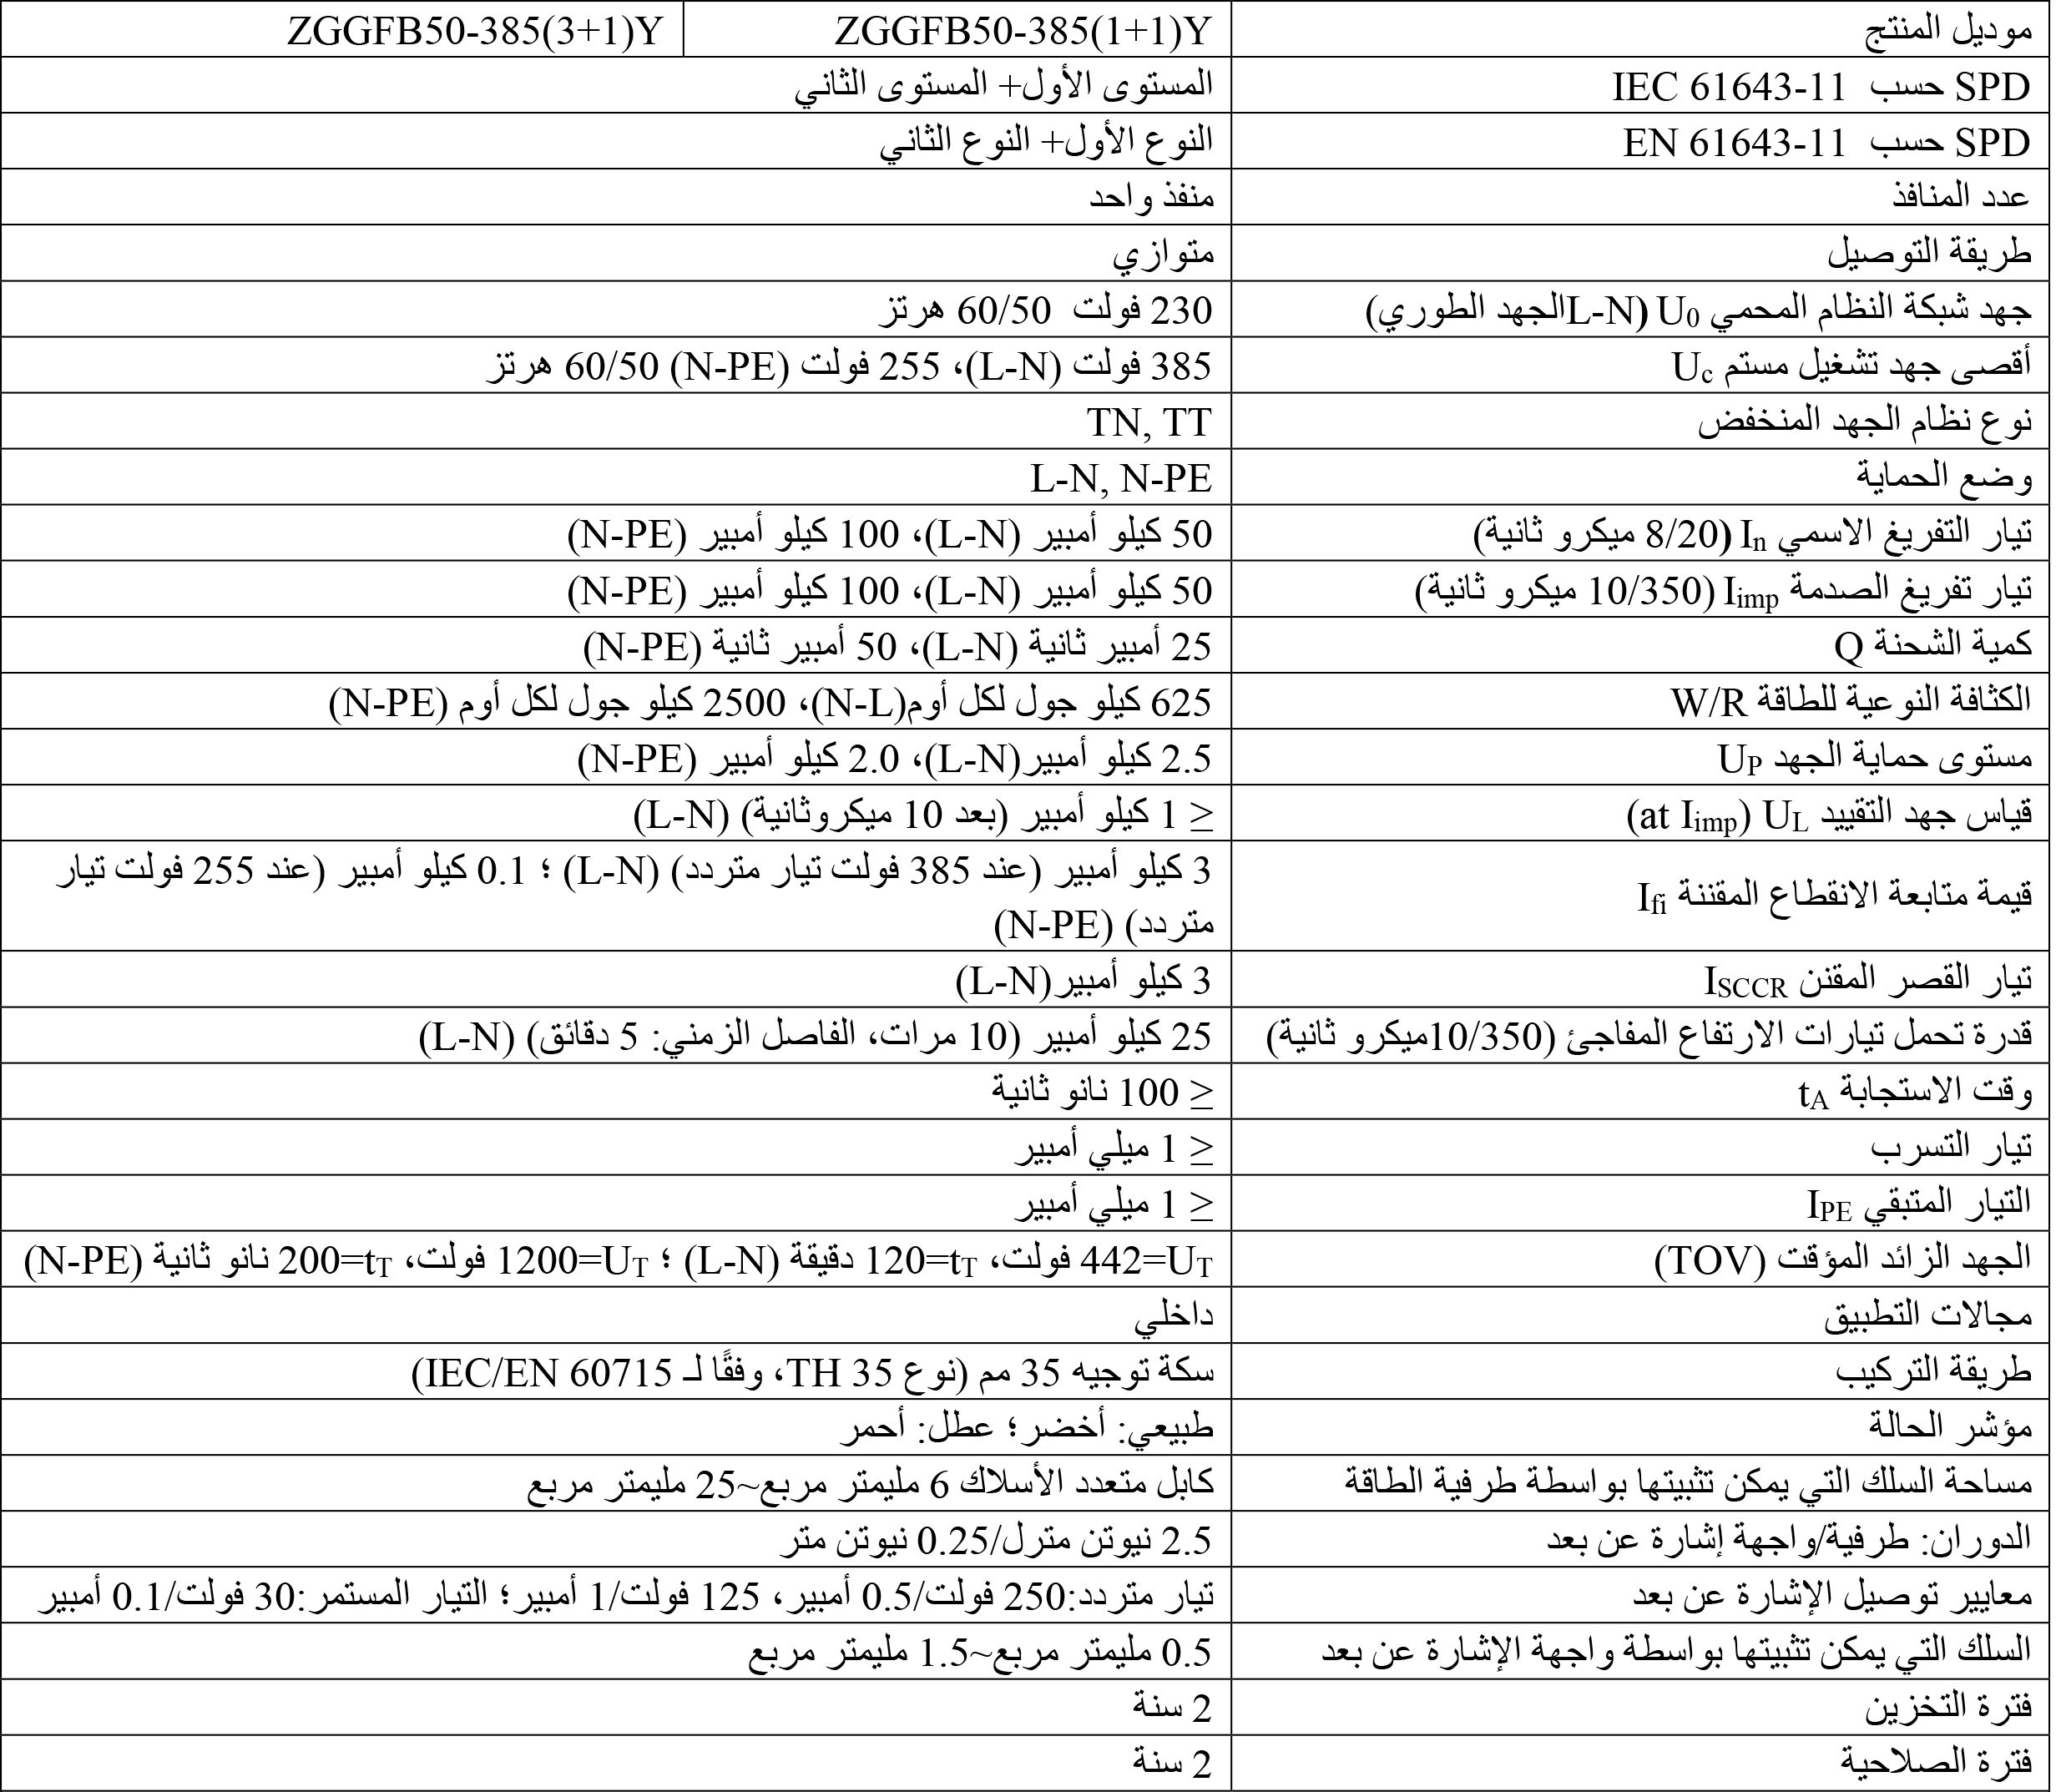 موديل المنتج ZGGFB50-385(1+1)Y ZGGFB50-385(3+1)Y
SPD حسب IEC 61643-11 المستوى الأول+ المستوى الثاني
SPD حسب EN 61643-11 النوع الأول+ النوع الثاني
عدد المنافذ منفذ واحد
طريقة التوصيل متوازي
جهد شبكة النظام المحمي U0 (L-Nالجهد الطوري) 230 فولت 60/50 هرتز
أقصى جهد تشغيل مستم Uc 385 فولت (L-N)، 255 فولت (N-PE) 60/50 هرتز
نوع نظام الجهد المنخفض TN, TT
وضع الحماية L-N, N-PE
تيار التفريغ الاسمي In (8/20 ميكرو ثانية) 50 كيلو أمبير (L-N)، 100 كيلو أمبير (N-PE)
تيار تفريغ الصدمة Iimp (10/350 ميكرو ثانية) 50 كيلو أمبير (L-N)، 100 كيلو أمبير (N-PE)
كمية الشحنة Q 25 أمبير ثانية (L-N)، 50 أمبير ثانية (N-PE)
الكثافة النوعية للطاقة W/R 625 كيلو جول لكل أوم(N-L)، 2500 كيلو جول لكل أوم (N-PE)
مستوى حماية الجهد UP 2.5 كيلو أمبير(L-N)، 2.0 كيلو أمبير (N-PE)
قياس جهد التقييد UL (at Iimp) ≤ 1 كيلو أمبير (بعد 10 ميكروثانية) (L-N)
قيمة متابعة الانقطاع المقننة Ifi 3 كيلو أمبير (عند 385 فولت تيار متردد) (L-N) ؛ 0.1 كيلو أمبير (عند 255 فولت تيار
متردد) (N-PE)
تيار القصر المقنن ISCCR 3 كيلو أمبير(L-N)
قدرة تحمل تيارات الارتفاع المفاجئ (10/350ميكرو ثانية) 25 كيلو أمبير (10 مرات، الفاصل الزمني: 5 دقائق) (L-N)
وقت الاستجابة tA ≤ 100 نانو ثانية
تيار التسرب ≤ 1 ميلي أمبير
التيار المتبقي IPE ≤ 1 ميلي أمبير
الجهد الزائد المؤقت (TOV) UT=442 فولت، tT=120 دقيقة (L-N) ؛ UT=1200 فولت، tT=200 نانو ثانية (N-PE)
مجالات التطبيق داخلي
طريقة التركيب سكة توجيه 35 مم (نوع TH 35، وفقًا لـ IEC/EN 60715)
مؤشر الحالة طبيعي: أخضر؛ عطل: أحمر
مساحة السلك التي يمكن تثبيتها بواسطة طرفية الطاقة كابل متعدد الأسلاك 6 مليمتر مربع~25 مليمتر مربع
الدوران: طرفية/واجهة إشارة عن بعد 2.5 نيوتن مترل/0.25 نيوتن متر
معايير توصيل الإشارة عن بعد تيار متردد:250 فولت/0.5 أمبير، 125 فولت/1 أمبير؛ التيار المستمر:30 فولت/0.1 أمبير
السلك التي يمكن تثبيتها بواسطة واجهة الإشارة عن بعد 0.5 مليمتر مربع~1.5 مليمتر مربع
فترة التخزين 2 سنة
فترة الصلاحية 2 سنة